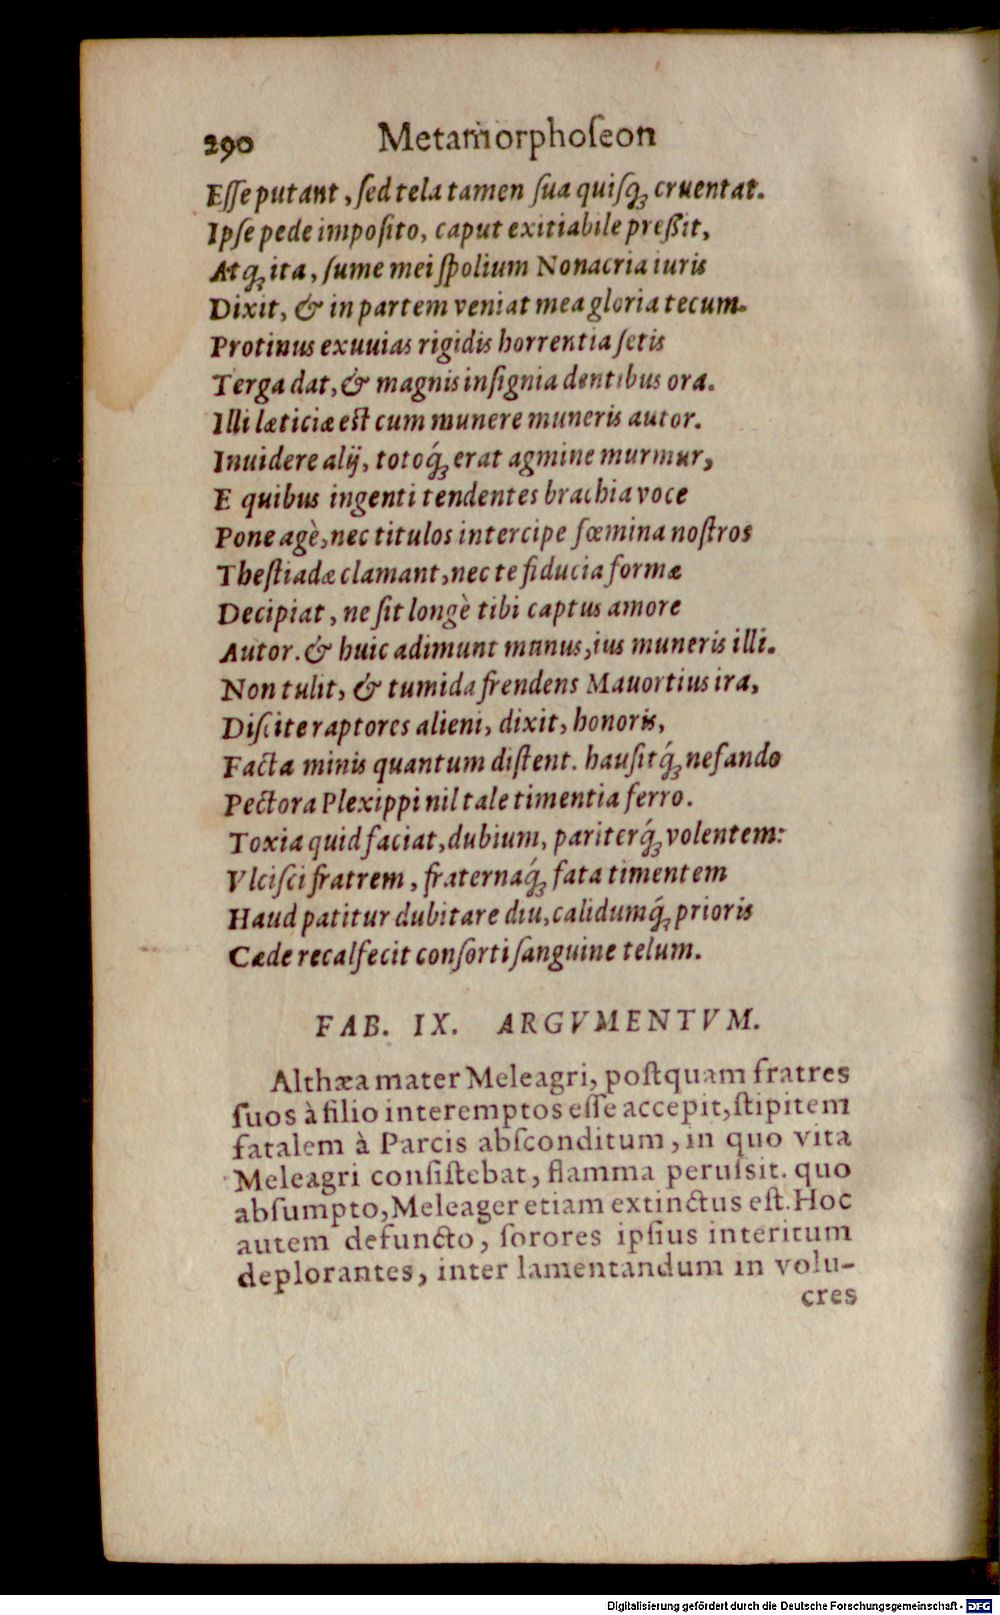 290 Metamorphoſeon
Eſſe putant, ſed tela tamen ſua quiſq; cruentat.
Ipſe pede impoſito, caput exitiabile preßit,
Atq; ita, ſume mei ſpolium Nonacria iuris
Dixit, & in partem veniat mea gloria tecum.
Protinus exuuias rigidis horrentia ſetis
Terga dat, & magnis inſignia dentibus ora.
Illi læticiæ eſt cum munere muneris autor.
Inuidere alij, totoq́; erat agmine murmur,
E quibus ingenti tendentes brachia voce
Pone agè, nec titulos intercipe fœmina noſtros
Theſtiadæ clamant, nec te fiducia formæ
Decipiat, ne ſit longè tibi captus amore
Autor. & huic adimunt munus, ius muneris illi.
Non tulit, & tumida frendens Mauortius ira,
Diſcite raptores alieni, dixit, honoris,
Facta minis quantum diſtent. hauſitq́; nefando
Pectora Plexippi nil tale timentia ferro.
Toxia quid faciat, dubium, pariterq́; volentem:
Vlciſci fratrem, fraternaq́; fata timentem
Haud patitur dubitare diu, calidumq́; prioris
Cæde recalfecit conſorti ſanguine telum.
FAB. IX. ARGVMENTVM.
Althæa mater Meleagri, poſtquam fratres
ſuos à filio interemptos eſſe accepit, ſtipitem
fatalem à Parcis abſconditum, in quo vita
Meleagri conſiſtebat, flamma peruſsit. quo
abſumpto, Meleager etiam extinctus eſt. Hoc
autem defuncto, ſorores ipſius interitum
deplorantes, inter lamentandum in volu-
cres
Digitalisierung gefördert durch die Deutsche Forschungsgemeinschaft - DFG